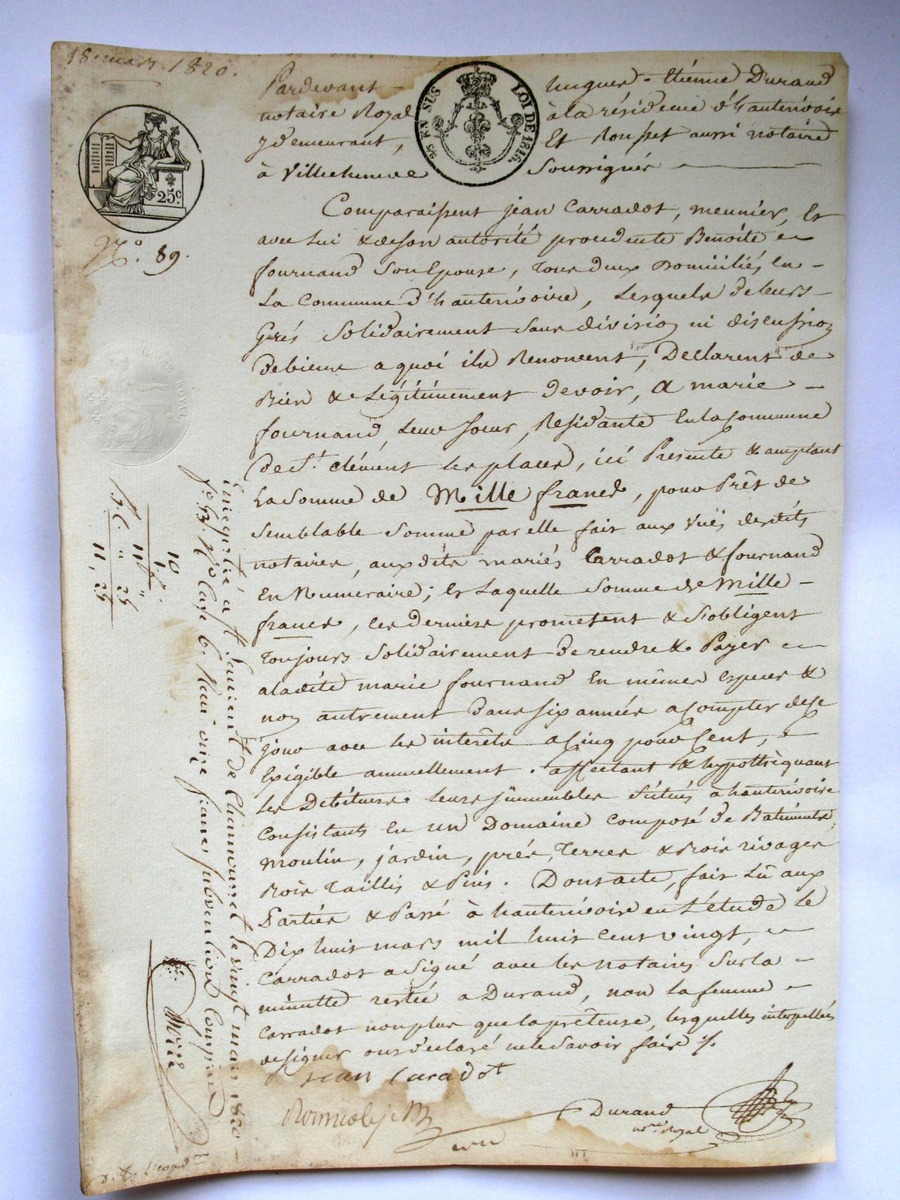 18 mars 1820.
Pardevant hugues-étiénne Durand
notaire Royal à la résidence d'hauterivoire
y demeurant, Et Rousset aussi notaire
à Villechenève Soussignés
25 EN SUS LOI DE 1816.
25c.
N.° 89.
Comparaissent jean Carradot, meunier, Et
avec lui & de son autorité procédante Benoite
fournand Son Epouse, tous deux domiciliés en
La Commune d'hauterivoire, Lesquels de leurs
Grés Solidairement Sans division ni discussion
de biens a quoi ils Renoncent, Déclarent de
Bien & Légitimement devoir, a marie
fournand, leur Sœur, Résidante En la Commune
de S.t Clément les places, ici Présente & acceptant
La Somme de Mille francs, pour Prêt de
Semblable Somme par elle fait aux Vuës desdits
notaires, aux dits mariés Carradot & fournand
En Numéraire; Et Laquelle Somme de Mille
francs, ces derniers promettent & S'obligent
toujours Solidairement de rendre & Payer
a ladite marie fournand En mêmes Espèces &
non autrement dans six années a Compter de Ce
jour avec les interêts a Cinq pour Cent,
Exigible annuellement. affectant & hypothéquant
les Débiteurs leurs immeubles Situés a hauterivoire
Consistants En un Domaine composé de Batiments
Moulin, jardin, prés, Terres & Bois rivages
Bois Taillis & Pins. Dont acte, fait Lû aux
Parties & Passé à hauterivoire en L'étude le
Dix huit mars mil huit Cent vingt,
Carradot a Signé avec les notaires Sur la
minutte restée a Durand, non la femme
Carradot non plus que la prêteuse, lesquelles interpellées
de signer ont déclaré ne le Savoir faire
jean Caradot
Durand
no.re Royal
Enregistré a St Laurent de Chamousset le vingt mars 1820
f.° R.° Case 6. Reçu onze francs subvention comprise
10
1
11 "
" 25
11, 25